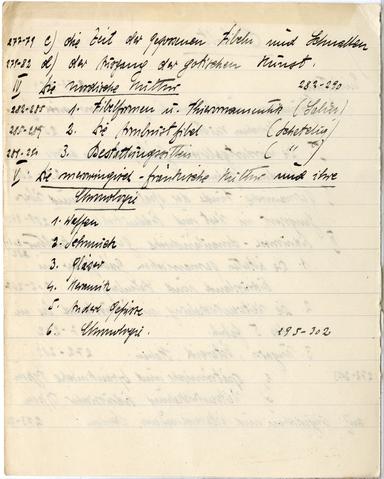 277-79 c) die Zeit der gegossenen Fibeln und Schnallen
279-82 d) der Ausgang der gotischen Kunst.
IV Die nordische Kultur 283-290
283-285 1. Fibelformen u. Tierornamentik (Salin)
285-289 2. Die Armbrustfibel (Schetelig)
289-290 3. Bestattungssitten ( " )
V. Die merowingisch-fränkische Kultur und ihre
Chronologie
1. Waffen
2. Schmuck
3. Gläser
4. Keramik
5. Andere Gefässe
6. Chronologie. 295-302